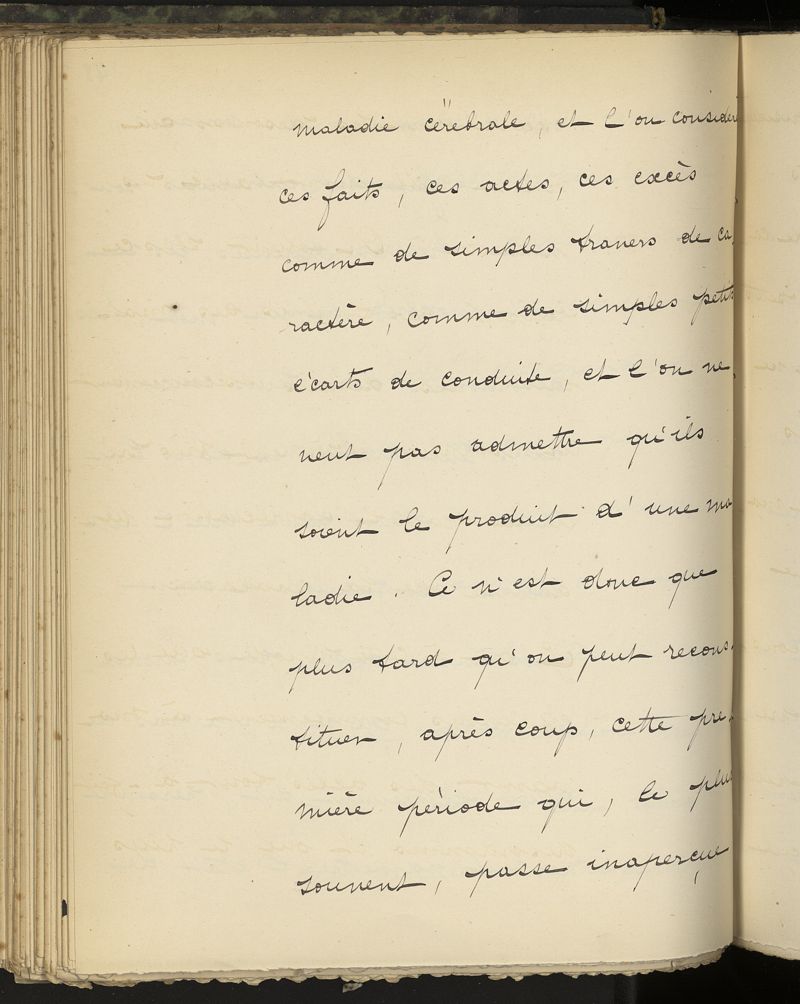 maladie cérébrale, et l'on considère
ces faits, ces actes, ces excès
comme de simples travers de ca-
ractère, comme de simples petits
écarts de conduite, et l'on ne
veut pas admettre qu'ils
soient le produit d'une ma
ladie. Ce n'est donc que
plus tard qu'on peut recons-
tituer, après coup, cette pre-
mière période qui, le plus
souvent, passe inaperçue